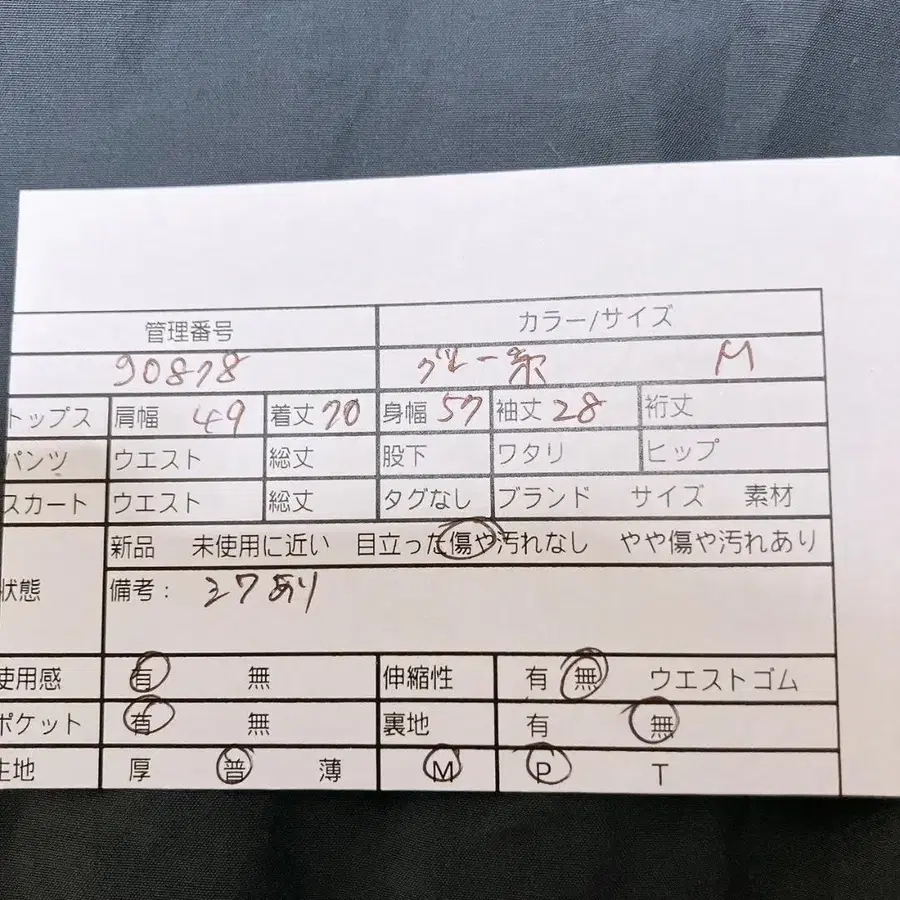 管理番号 カラー/サイズ
90878 グレー系 M
トップス 肩幅 49 着丈 70 身幅 57 袖丈 28 裄丈
パンツ ウエスト 総丈 股下 ワタリ ヒップ
スカート ウエスト 総丈 タグなし ブランド サイズ 素材
新品 未使用に近い 目立った傷や汚れなし やや傷や汚れあり
状態 備考： シワあり
使用感 有 無 伸縮性 有 無 ウエストゴム
ポケット 有 無 裏地 有 無
生地 厚 普 薄 M P T